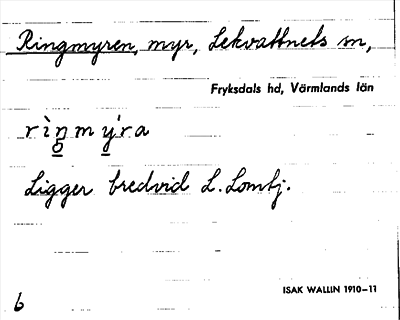 Ringmyren, myr, Lekvattnets sn,
Fryksdals hd, Värmlands län
rìŋmýra
Ligger bredvid L. Lomtj.
ISAK WALLIN 1910–11
6